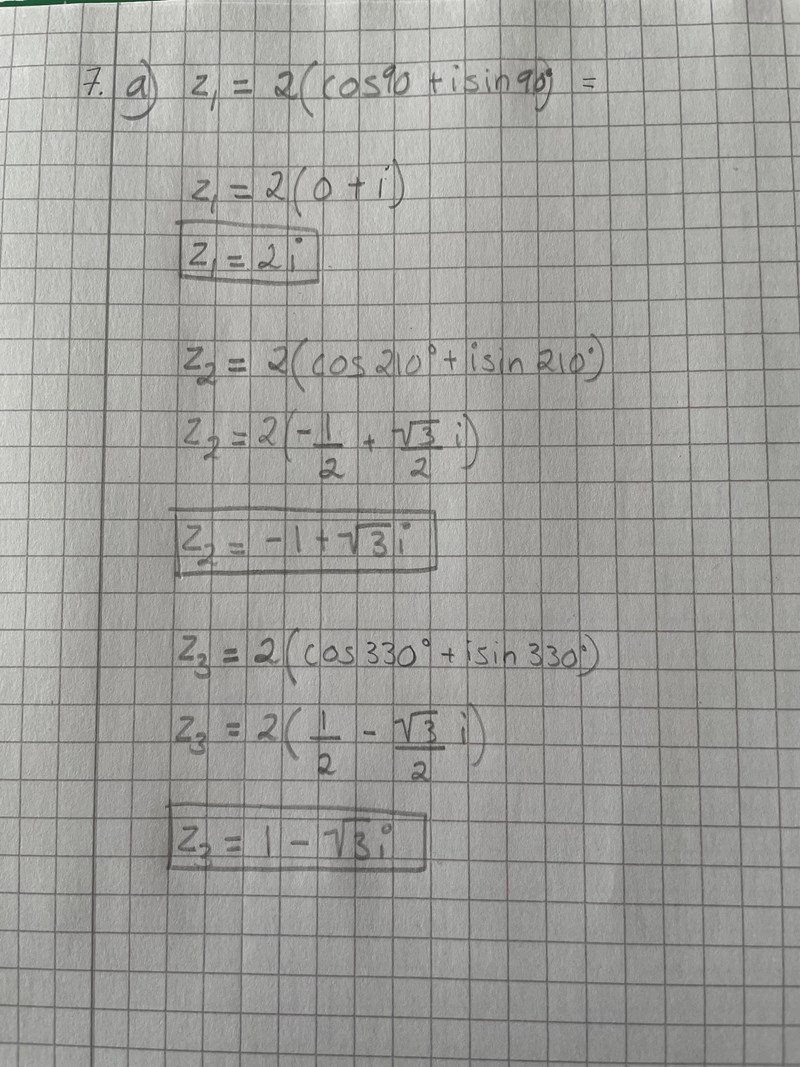 7. a) z₁ = 2(cos90 + isin90°) =
z₁ = 2(0 + i)
z₁ = 2i
z₂ = 2(cos210° + isin210°)
z₂ = 2(-1/2 + √3/2 i)
z₂ = -1 + √3i
z₃ = 2(cos330° + isin330°)
z₃ = 2(1/2 - √3/2 i)
z₃ = 1 - √3i